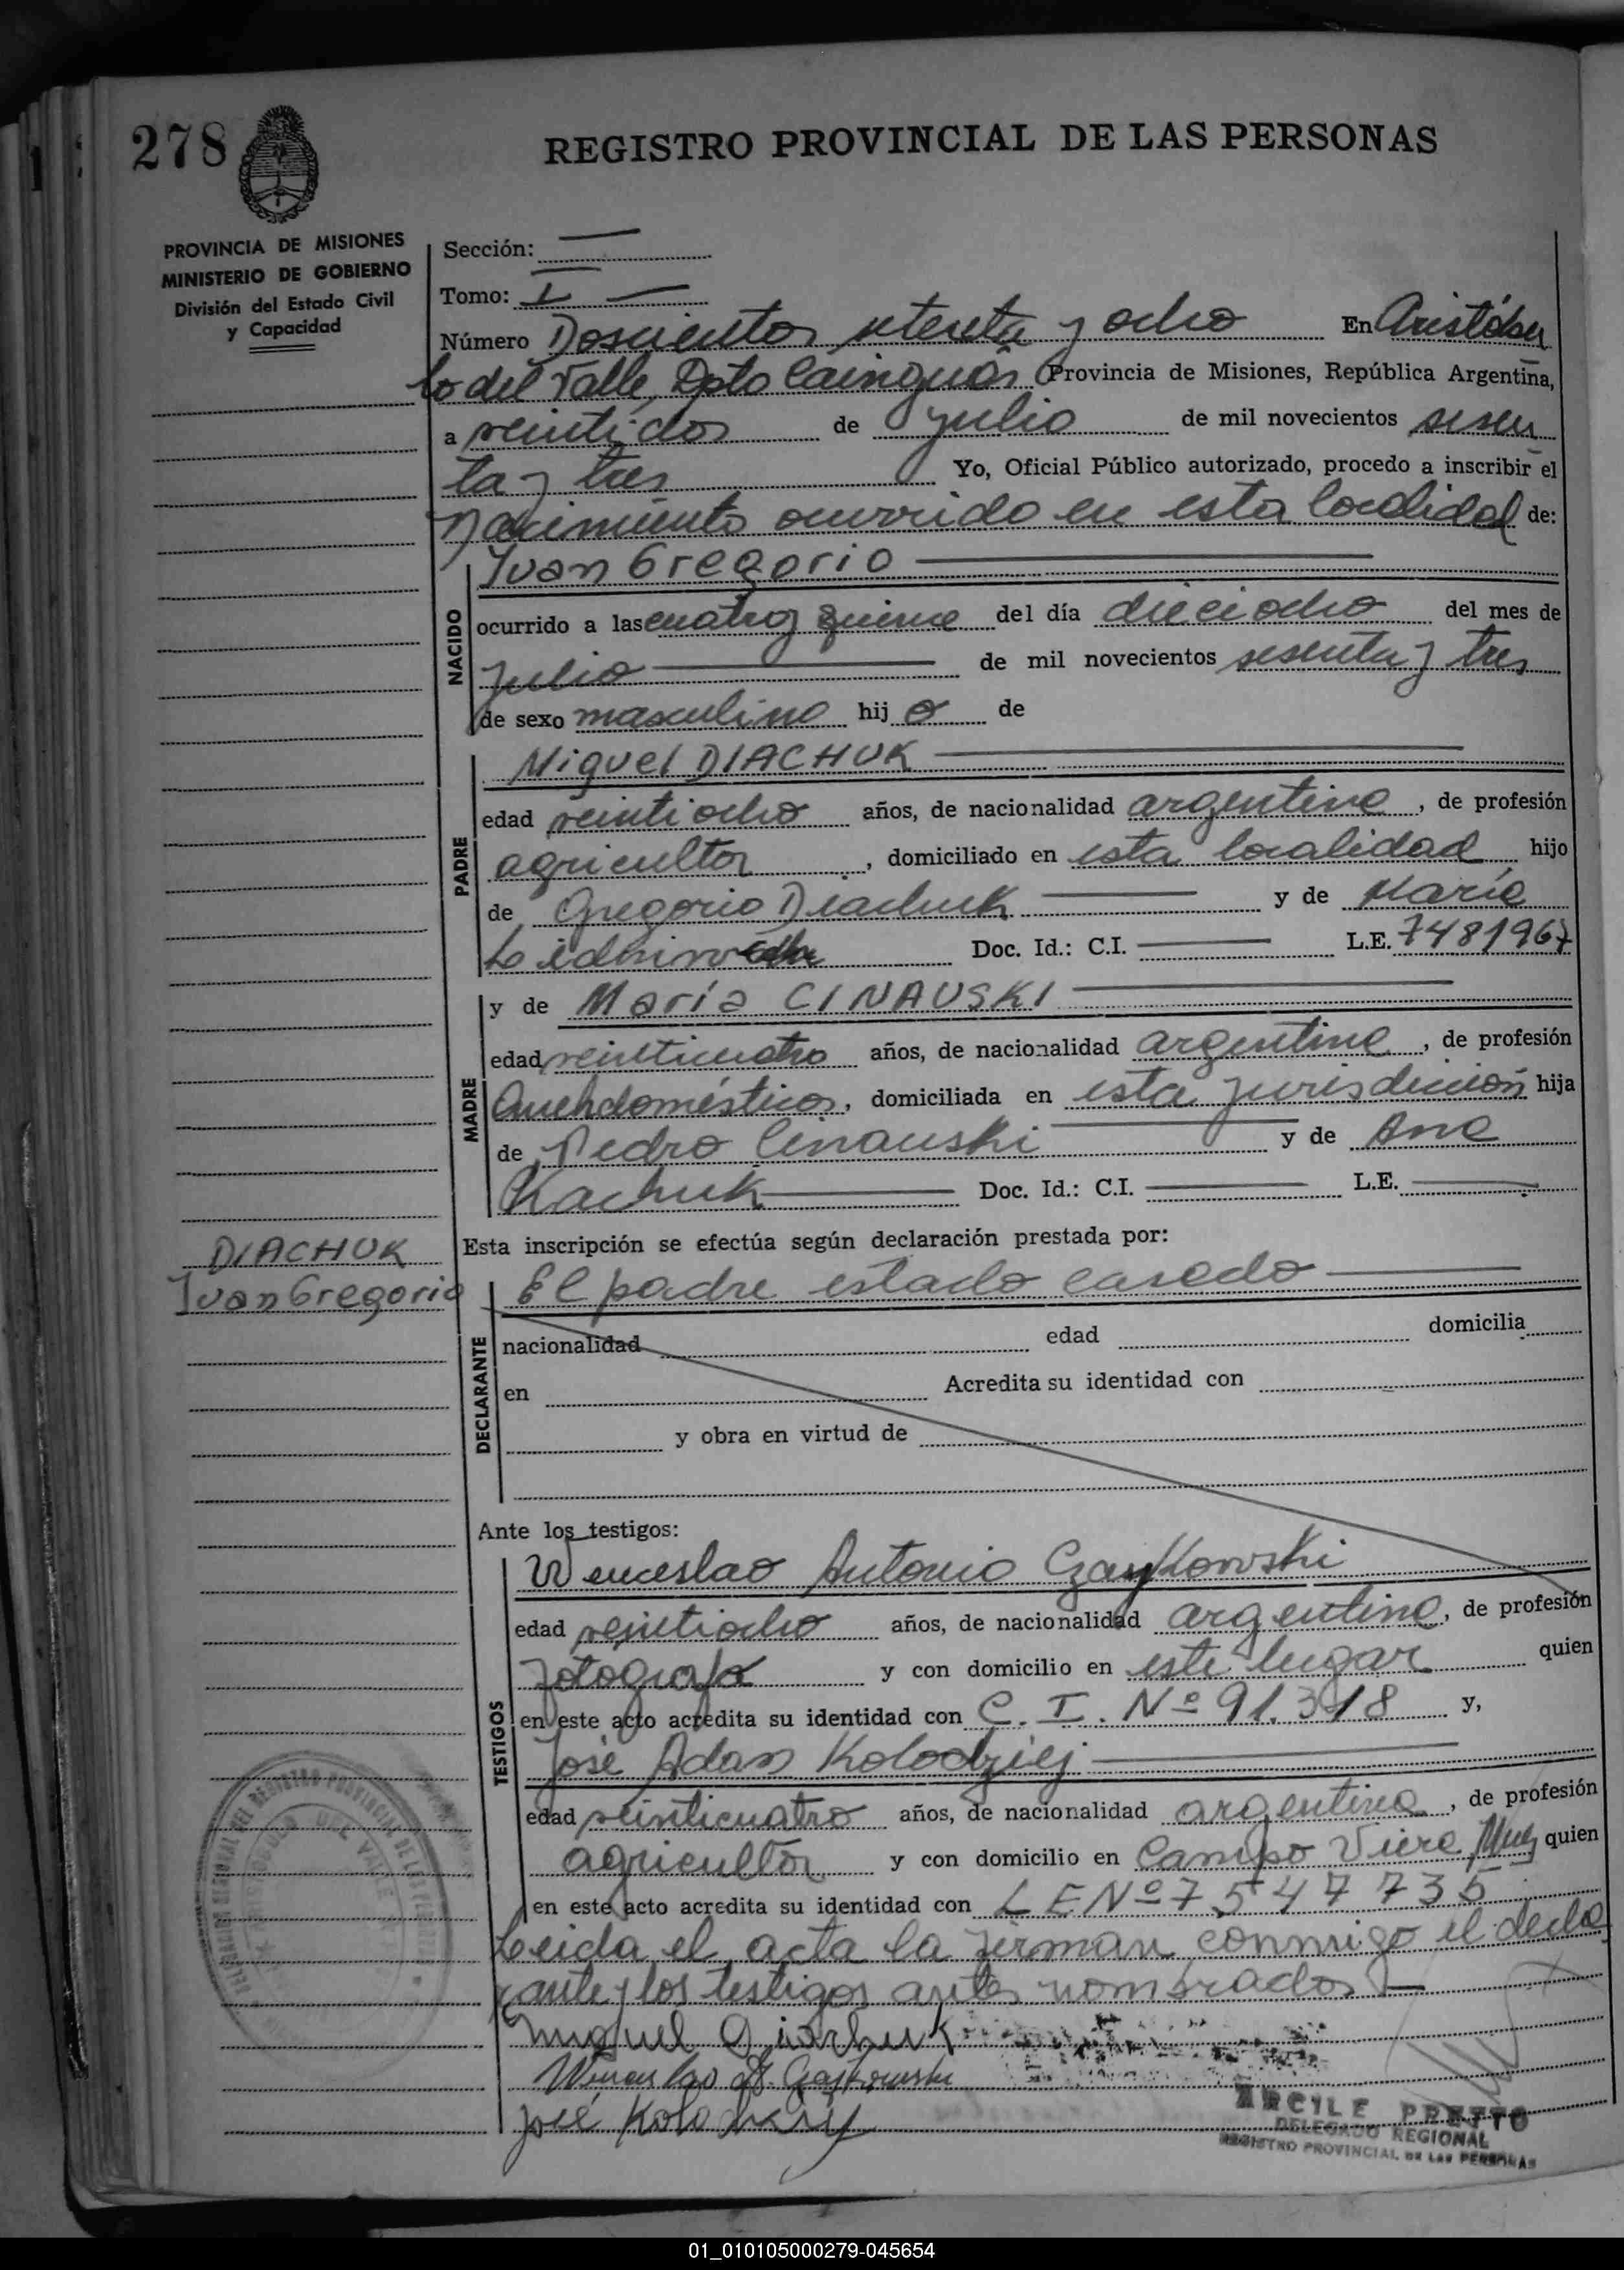 278
REGISTRO PROVINCIAL DE LAS PERSONAS
PROVINCIA DE MISIONES
MINISTERIO DE GOBIERNO
División del Estado Civil
y Capacidad
Sección:
Tomo: I
Número Doscientos setenta y ocho En Aristóbu
lo del Valle, Dpto Cainguás Provincia de Misiones, República Argentina,
a veintidos de julio de mil novecientos sesen
ta y tres Yo, Oficial Público autorizado, procedo a inscribir el
Nacimiento ocurrido en esta localidad de:
Juan Gregorio
NACIDO
ocurrido a las cuatro y quince del día dieciocho del mes de
julio de mil novecientos sesenta y tres
de sexo masculino hij o de
PADRE
Miguel DIACHUK
edad veintiocho años, de nacionalidad argentina, de profesión
agricultor, domiciliado en esta localidad hijo
de Gregorio Diachuk y de María
Doc. Id.: C.I. L.E. 7481967
MADRE
y de María CINAUSKI
edad veinticuatro años, de nacionalidad argentina, de profesión
Quehdomésticos, domiciliada en esta jurisdicción hija
de Pedro Cinauski y de Ana
Kachuk Doc. Id.: C.I. L.E.
DIACHUK
Juan Gregorio
Esta inscripción se efectúa según declaración prestada por:
DECLARANTE
El padre estado casado
nacionalidad edad domicilia
en Acredita su identidad con
y obra en virtud de
Ante los testigos:
TESTIGOS
Wenceslao Antonio Czaykowski
edad veintiocho años, de nacionalidad argentina, de profesión
fotografo y con domicilio en este lugar quien
en este acto acredita su identidad con C. I. Nº 91.318 y,
José Adan Kolodziej
edad veinticuatro años, de nacionalidad argentina, de profesión
agricultor y con domicilio en Campo Viera, Mnes quien
en este acto acredita su identidad con LE Nº 7547735
Leida el acta la firman conmigo el decla
rante y los testigos antes nombrados
Miguel Diachuk
Wenceslao A. Czaykowski
José Kolodziej
ARCILE PRETTO
DELEGADO REGIONAL
REGISTRO PROVINCIAL DE LAS PERSONAS
01_010105000279-045654